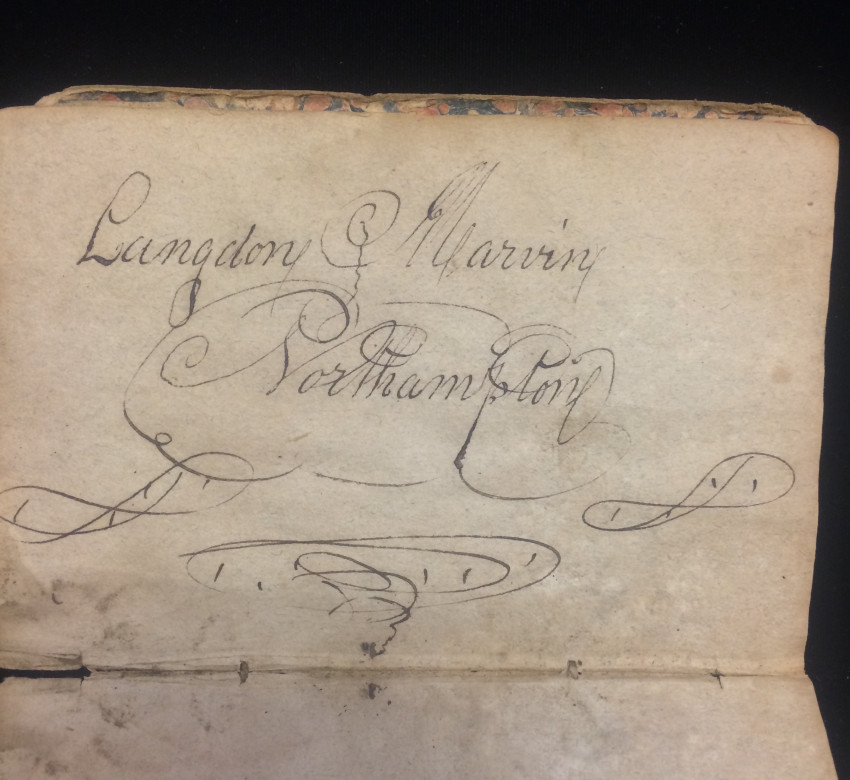 Langdon Marvin
Northampton